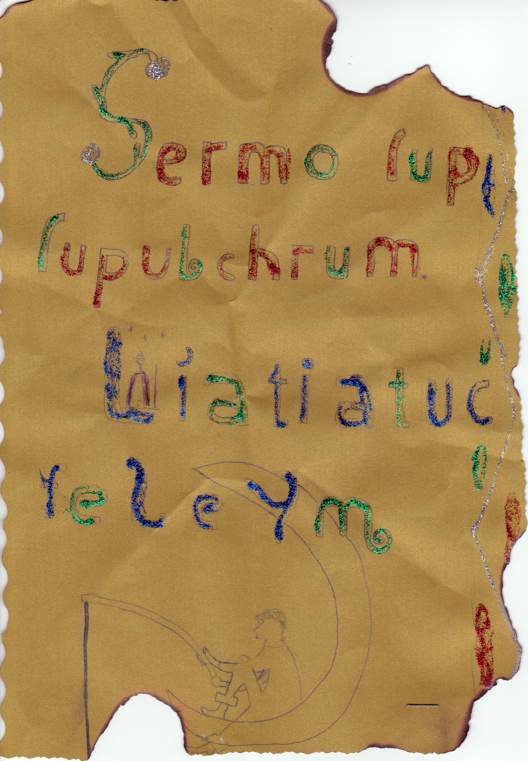 Sermo ſup
ſupulchrum.
Líatiatuċ
releym